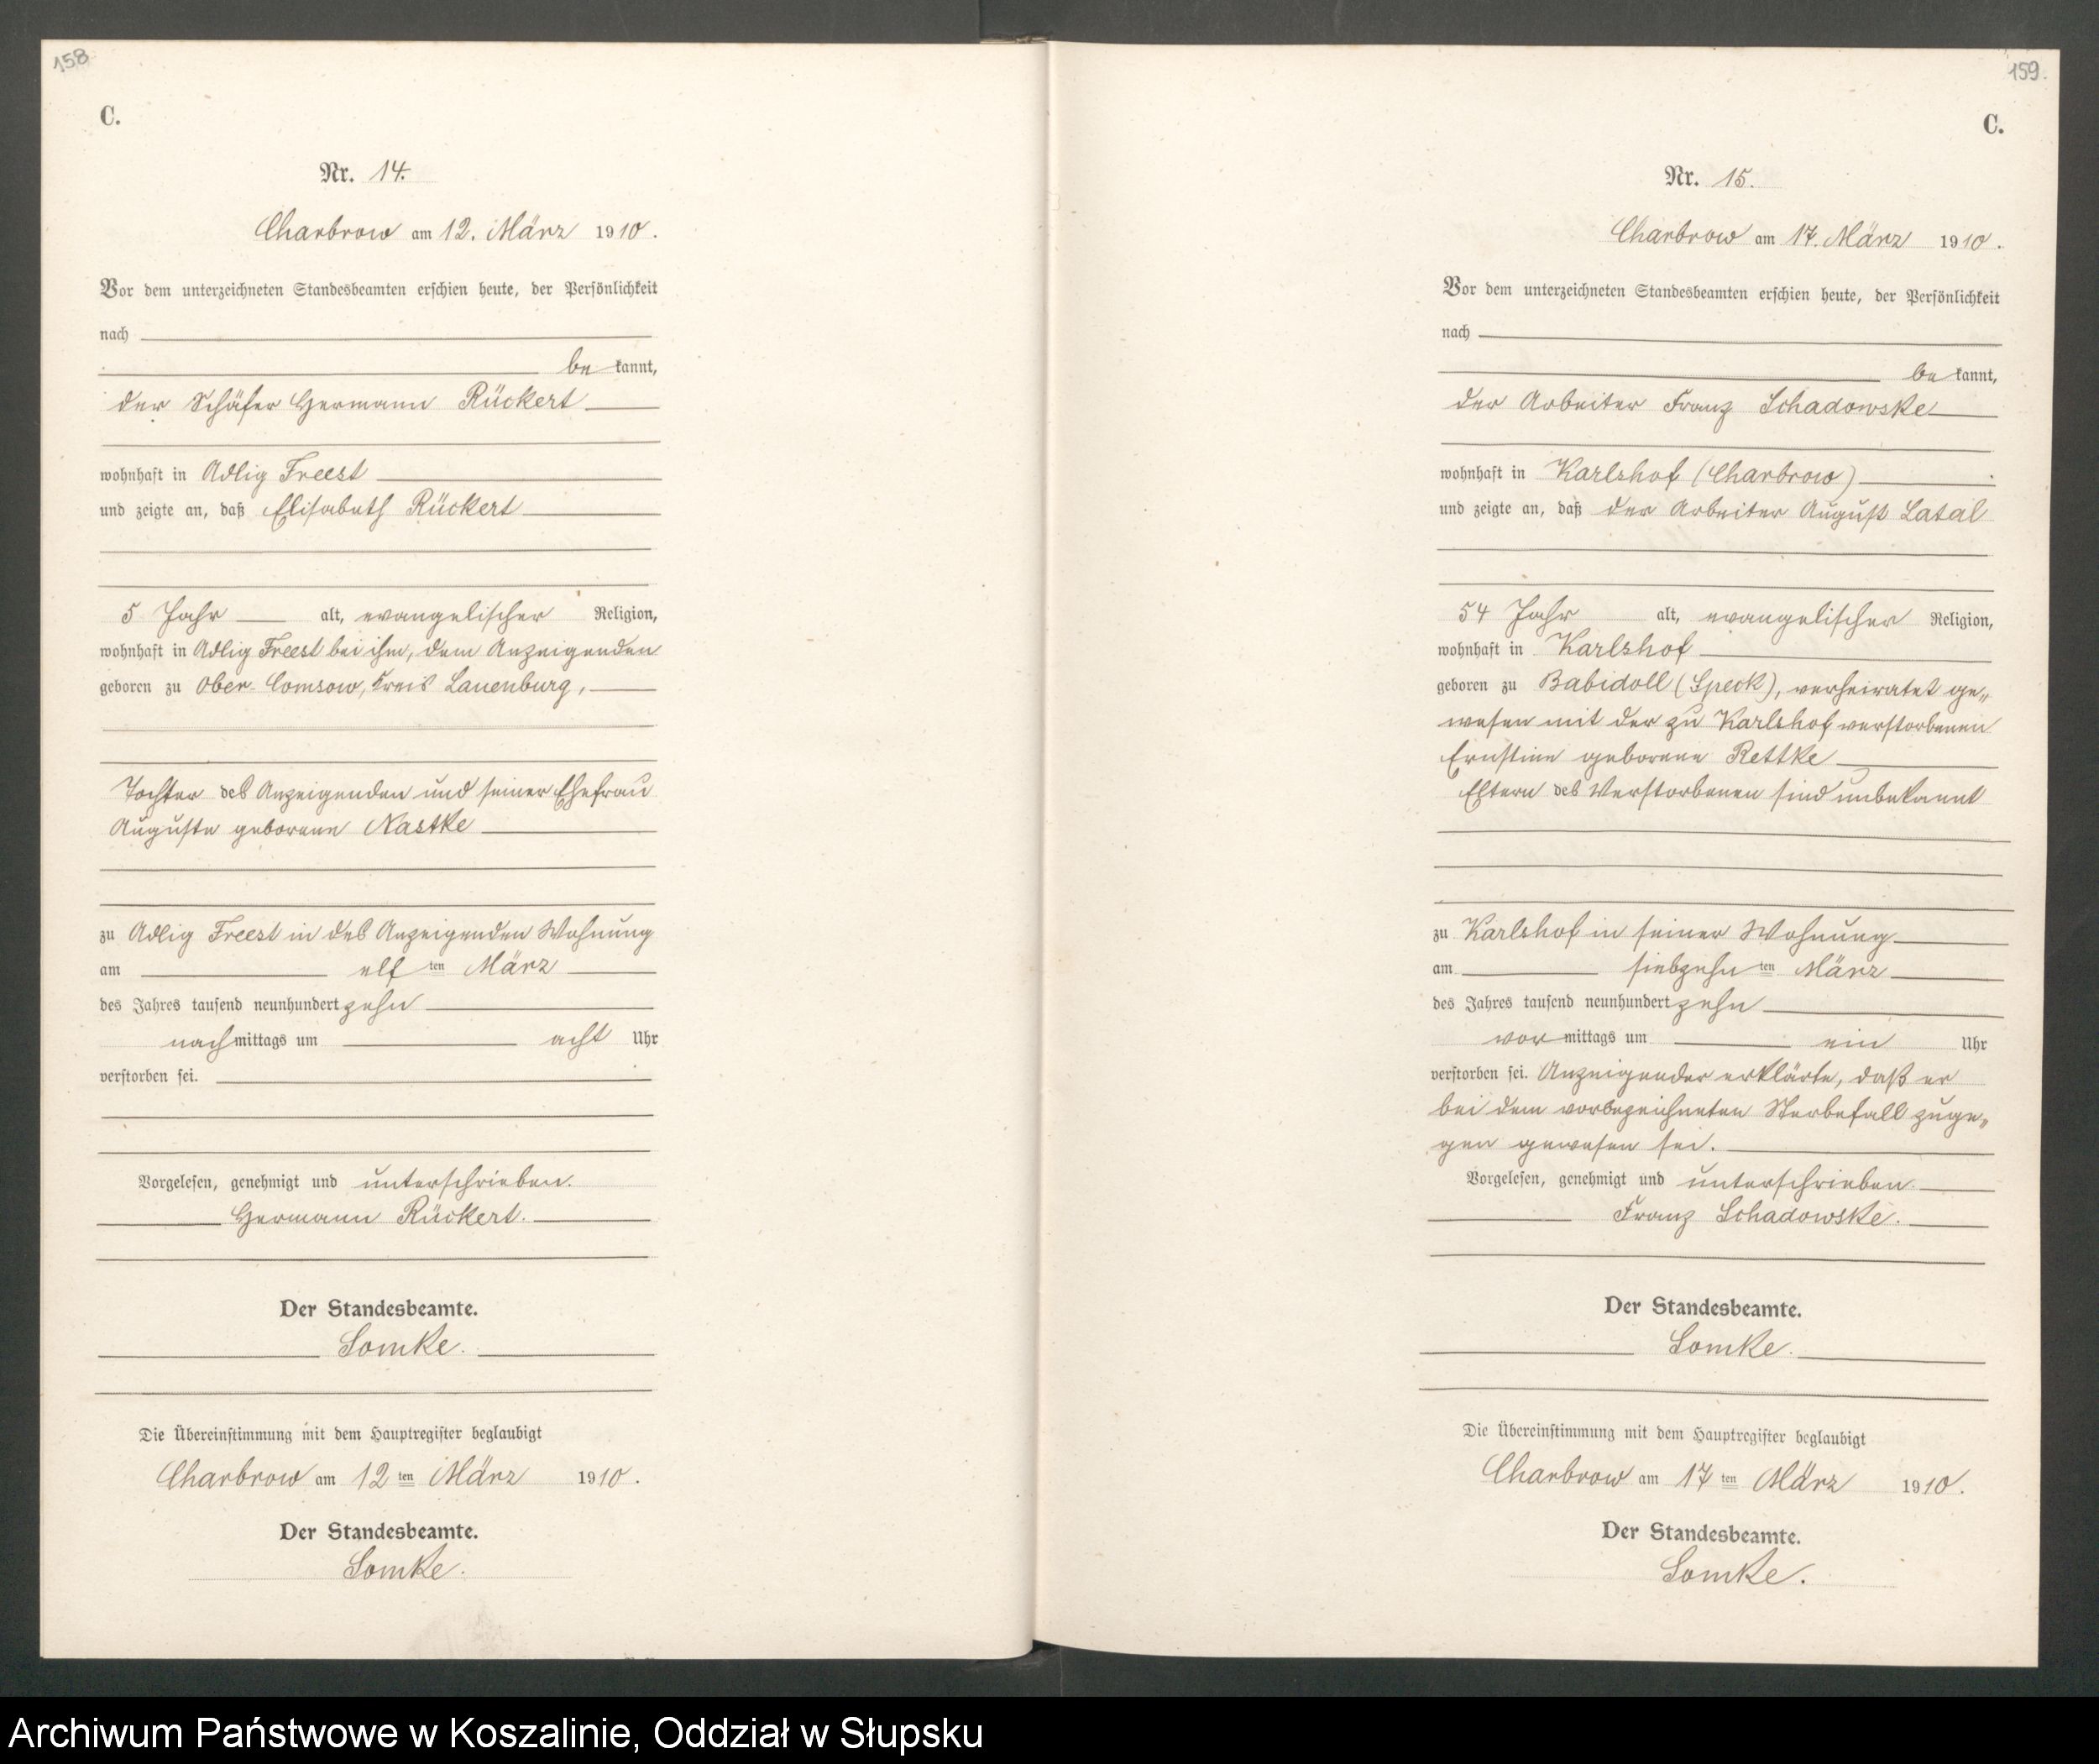 158
C.
Nr. 14.
Charbrow am 12. März 1910.
Vor dem unterzeichneten Standesbeamten erschien heute, der Persönlichkeit
nach
be kannt,
der Schäfer Hermann Rückert
wohnhaft in Adlig Freest
und zeigte an, daß Elisabeth Rückert
5 Jahr alt, evangelischer Religion,
wohnhaft in Adlig Freest bei ihm, dem Anzeigenden
geboren zu Ober-Comsow, Kreis Lauenburg,
Tochter des Anzeigenden und seiner Ehefrau
Auguste geborene Nastke
zu Adlig Freest in des Anzeigenden Wohnung
am elf ten März
des Jahres tausend neunhundert zehn
nach mittags um acht Uhr
verstorben sei.
Vorgelesen, genehmigt und unterschrieben.
Hermann Rückert.
Der Standesbeamte.
Somke.
Die Übereinstimmung mit dem Hauptregister beglaubigt
Charbrow am 12 ten März 1910.
Der Standesbeamte.
Somke.
159.
C.
Nr. 15.
Charbrow am 17. März 1910.
Vor dem unterzeichneten Standesbeamten erschien heute, der Persönlichkeit
nach
be kannt,
der Arbeiter Franz Schadowske
wohnhaft in Karlshof (Charbrow)
und zeigte an, daß der Arbeiter August Latal
54 Jahr alt, evangelischer Religion,
wohnhaft in Karlshof
geboren zu Babidoll (Speck), verheiratet ge„
wesen mit der zu Karlshof verstorbenen
Ernstine geborene Rettke
Eltern des Verstorbenen sind unbekannt
zu Karlshof in seiner Wohnung
am siebzehn ten März
des Jahres tausend neunhundert zehn
vor mittags um ein Uhr
verstorben sei. Anzeigender erklärte, daß er
bei dem vorbezeichneten Sterbefall zuge„
gen gewesen sei.
Vorgelesen, genehmigt und unterschrieben.
Franz Schadowske.
Der Standesbeamte.
Somke.
Die Übereinstimmung mit dem Hauptregister beglaubigt
Charbrow am 17 ten März 1910.
Der Standesbeamte.
Somke.
Archiwum Państwowe w Koszalinie, Oddział w Słupsku